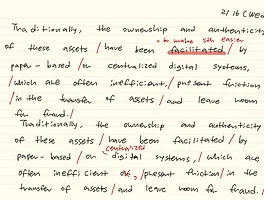 2/16 (Wed
Traditionally, the ownership and authenticity
→ to make sth easier
of these assets / have been facilitated / by
paper-based / or centralized digital systems,
/ which are often inefficient, / present friction
/ in the transfer of assets / and leave room
for fraud. /
Traditionally, the ownership and authenticity
of these assets / have been facilitated / by
centralized
paper-based / or digital systems, / which are
often inefficient / present friction / in the
transfer of assets / and leave room for fraud. /